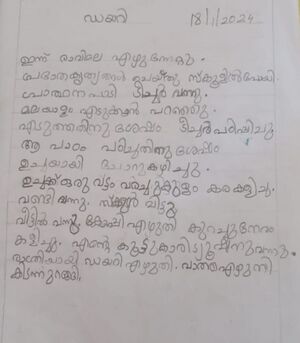 ഡയറി 18/1/2024
ഇന്ന് രാവിലെ എഴുന്നേറ്റു.
പ്രഭാതകൃത്യങ്ങൾ ചെയ്തു സ്കൂളിൽ പോയി.
ടീച്ചർ വന്നു.
മലയാളം എടുക്കാൻ പറഞ്ഞു.
എടുത്തതിനു ശേഷം ടീച്ചർ പഠിപ്പിച്ചു
ആ പാഠം പഠിച്ചതിനു ശേഷം
ഉച്ചയായി ചോറു കഴിച്ചു.
ഉച്ചക്ക് ഒരു വട്ടം വരച്ചു കള്ളം കര കളിച്ചു.
വണ്ടി വന്നു. സ്കൂൾ വിട്ടു
വീട്ടിൽ വന്നു കോപ്പി എഴുതി കുറച്ചു നേരം
കളിച്ചു. എന്റെ കൂട്ടുകാരി ട്യൂഷന് വന്നു.
രാത്രിയായി ഡയറി എഴുതി. വാർത്ത എഴുന്നി
കിടന്നുറങ്ങി.